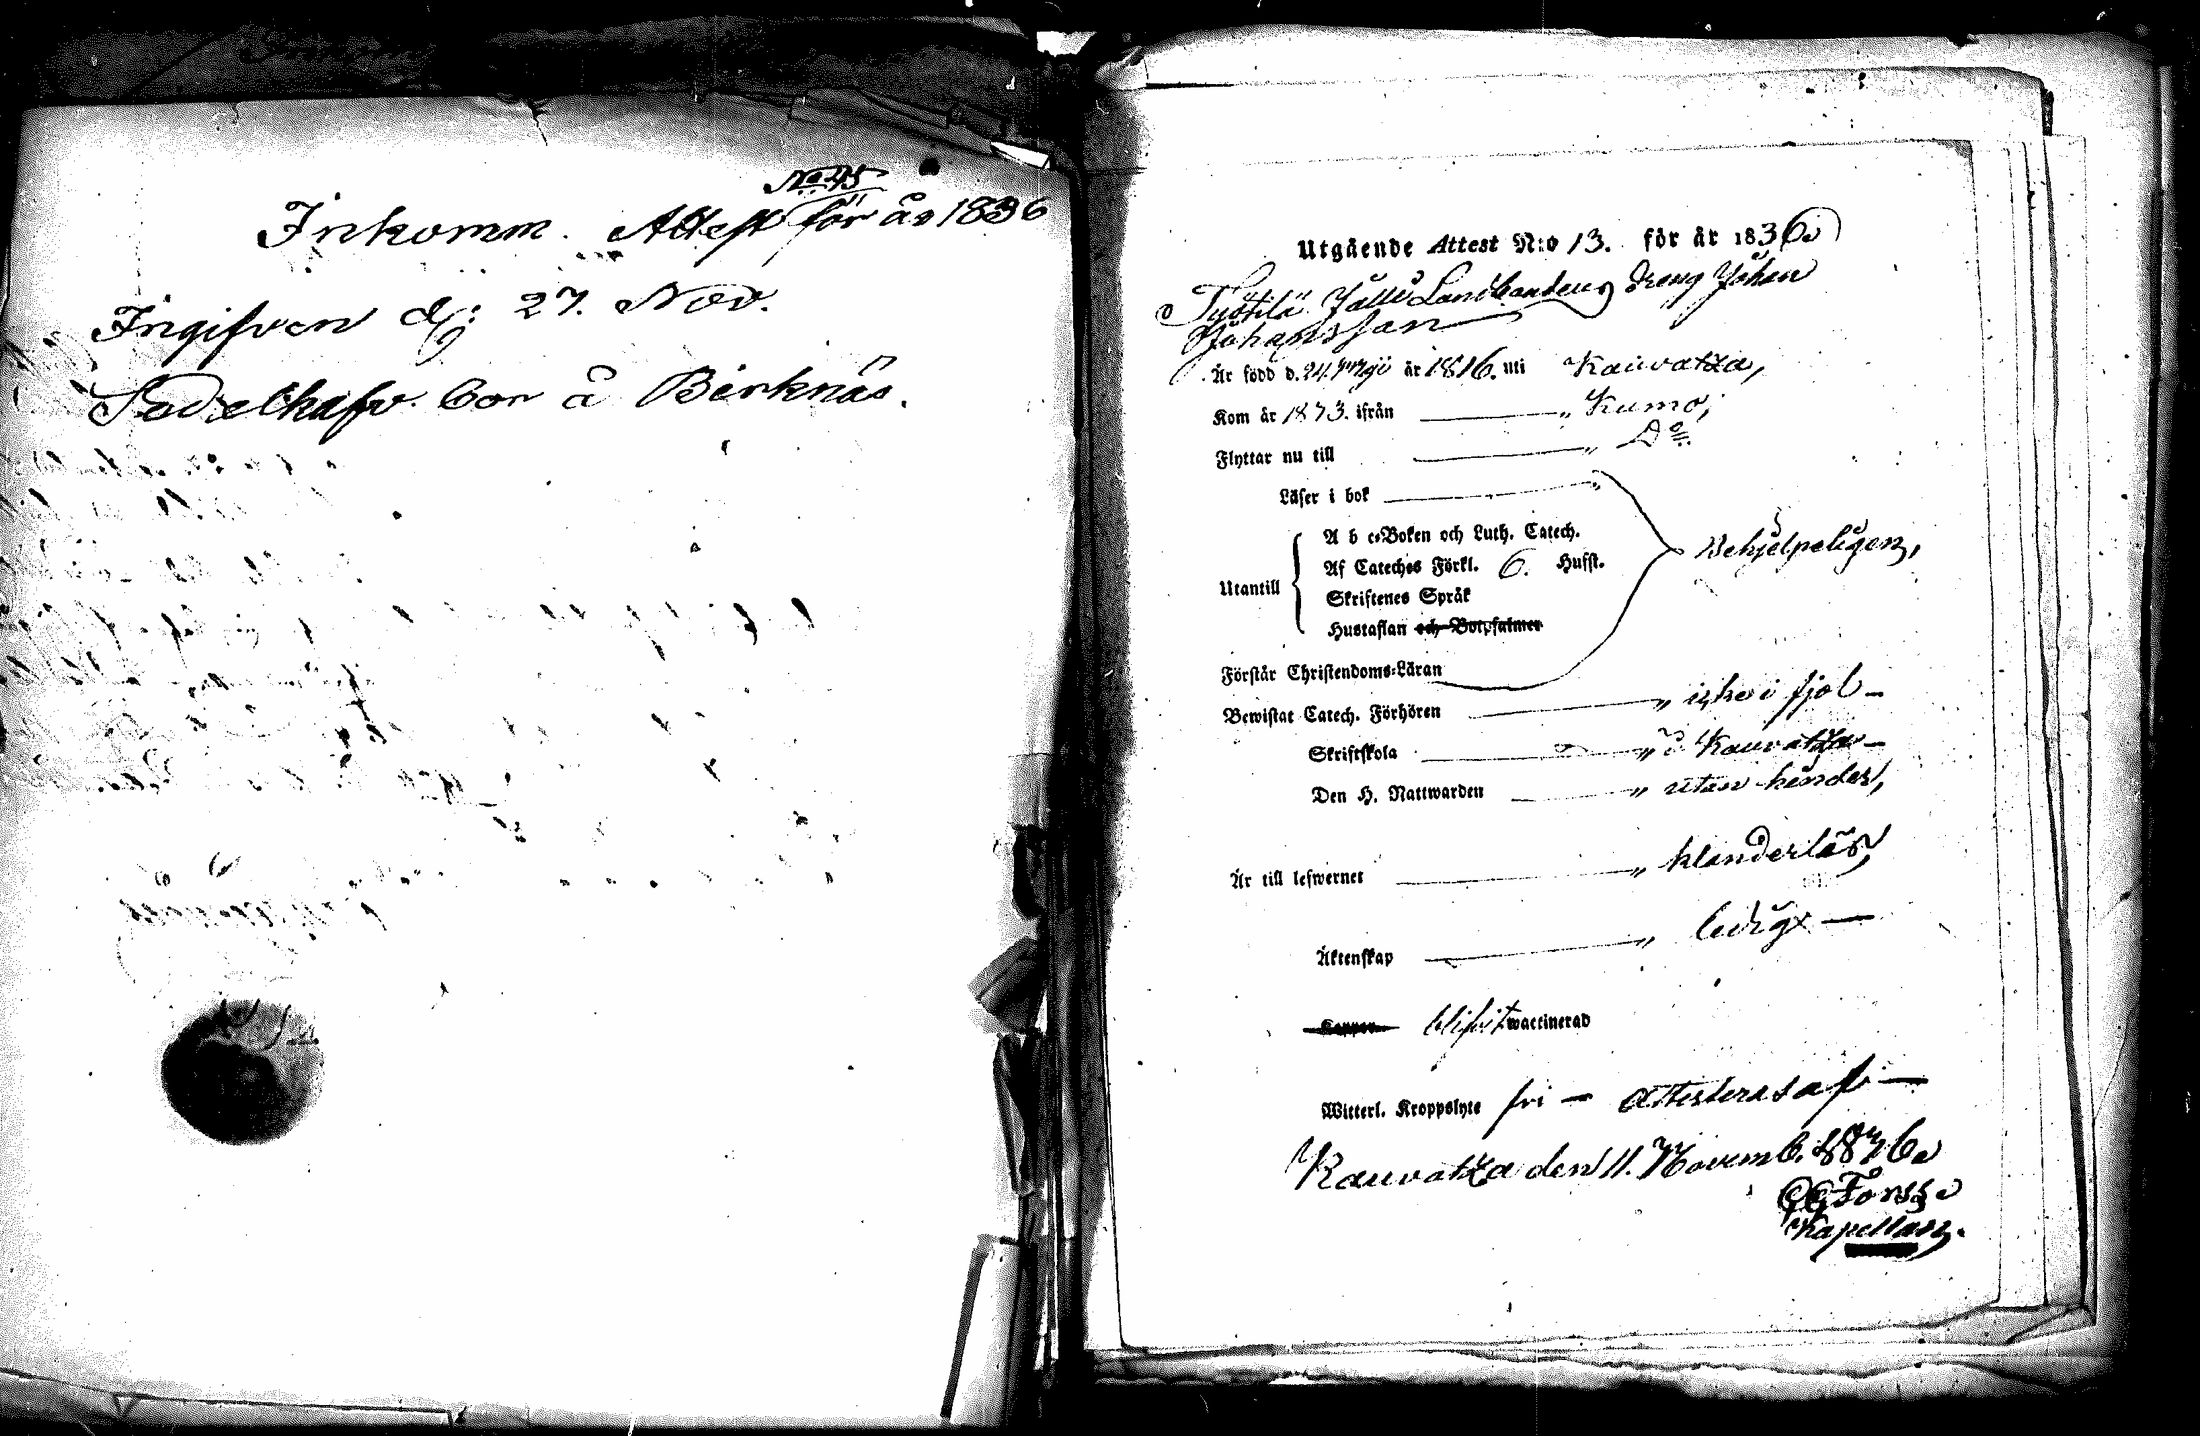 No 45
Inkomm. Attest för år 1836
Ingifven d: 27. Nov.
Sadelhafv. bor å Birknäs.
Utgående Attest N:o 13. för år 1836.
Tystilä Jalli Landbondens dreng Johan
Johansson
Är född d. 24. Maji år 1816. uti Kauvatza,
Kom år 1833. ifrån " Kumo;
Flyttar nu till " D:o
Läser i bok "
A b c-Boken och Luth. Catech.
Utantill Af Cateches Förkl. 6. Hufst. Behjelpeligen,
Skriftenes Språk
Hustaflan och Botpsalmer
Förstår Christendoms-Läran
Bewistat Catech. Förhören " icke i fjol –
Skriftskola " i Kauvatza –
Den H. Nattwarden " utan hinder,
Är till lefwernet " klanderlös,
Äktenskap " ledig –
Koppor blifvit waccinerad
Witterl. Kroppslyte fri – attesteras af –
Kauvatza den 11. Novemb. 1836.
Forss.
Kapellan.